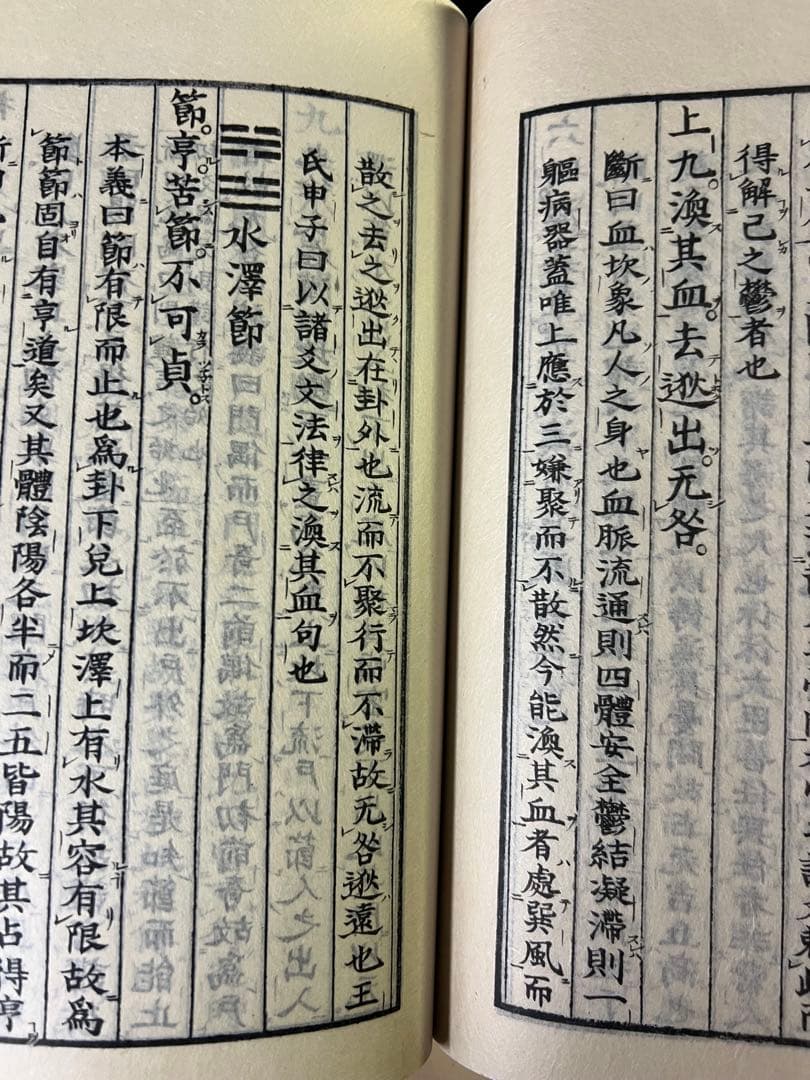 得解己之鬱者也
上九。渙其血。去逖出。无咎。
斷曰血坎象凡人之身也血脈流通則四體安全鬱結凝滯則一
軀病器蓋唯上應於三嫌聚而不散然今能渙其血者處巽風而
散之去之逖出在卦外也流而不聚行而不滯故无咎逖遠也王
氏申子曰以諸爻文法律之渙其血句也
水澤節
節。亨。苦節。不可貞。
本義曰節有限而止也爲卦下兌上坎澤上有水其容有限故爲
節節固自有亨道矣又其體陰陽各半而二五皆陽故其占得亨